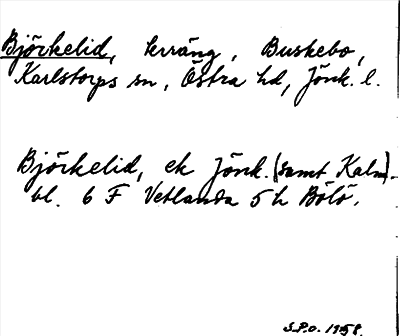 Björkelid, kräng, Buskebo,
Karlstorps sn, Östra hd, Jönk. l.
Björkelid, ek Jönk. (samt Kalm).
bl. 6 F Vetlanda 5 h Bölö.
S.P.o. 1958.